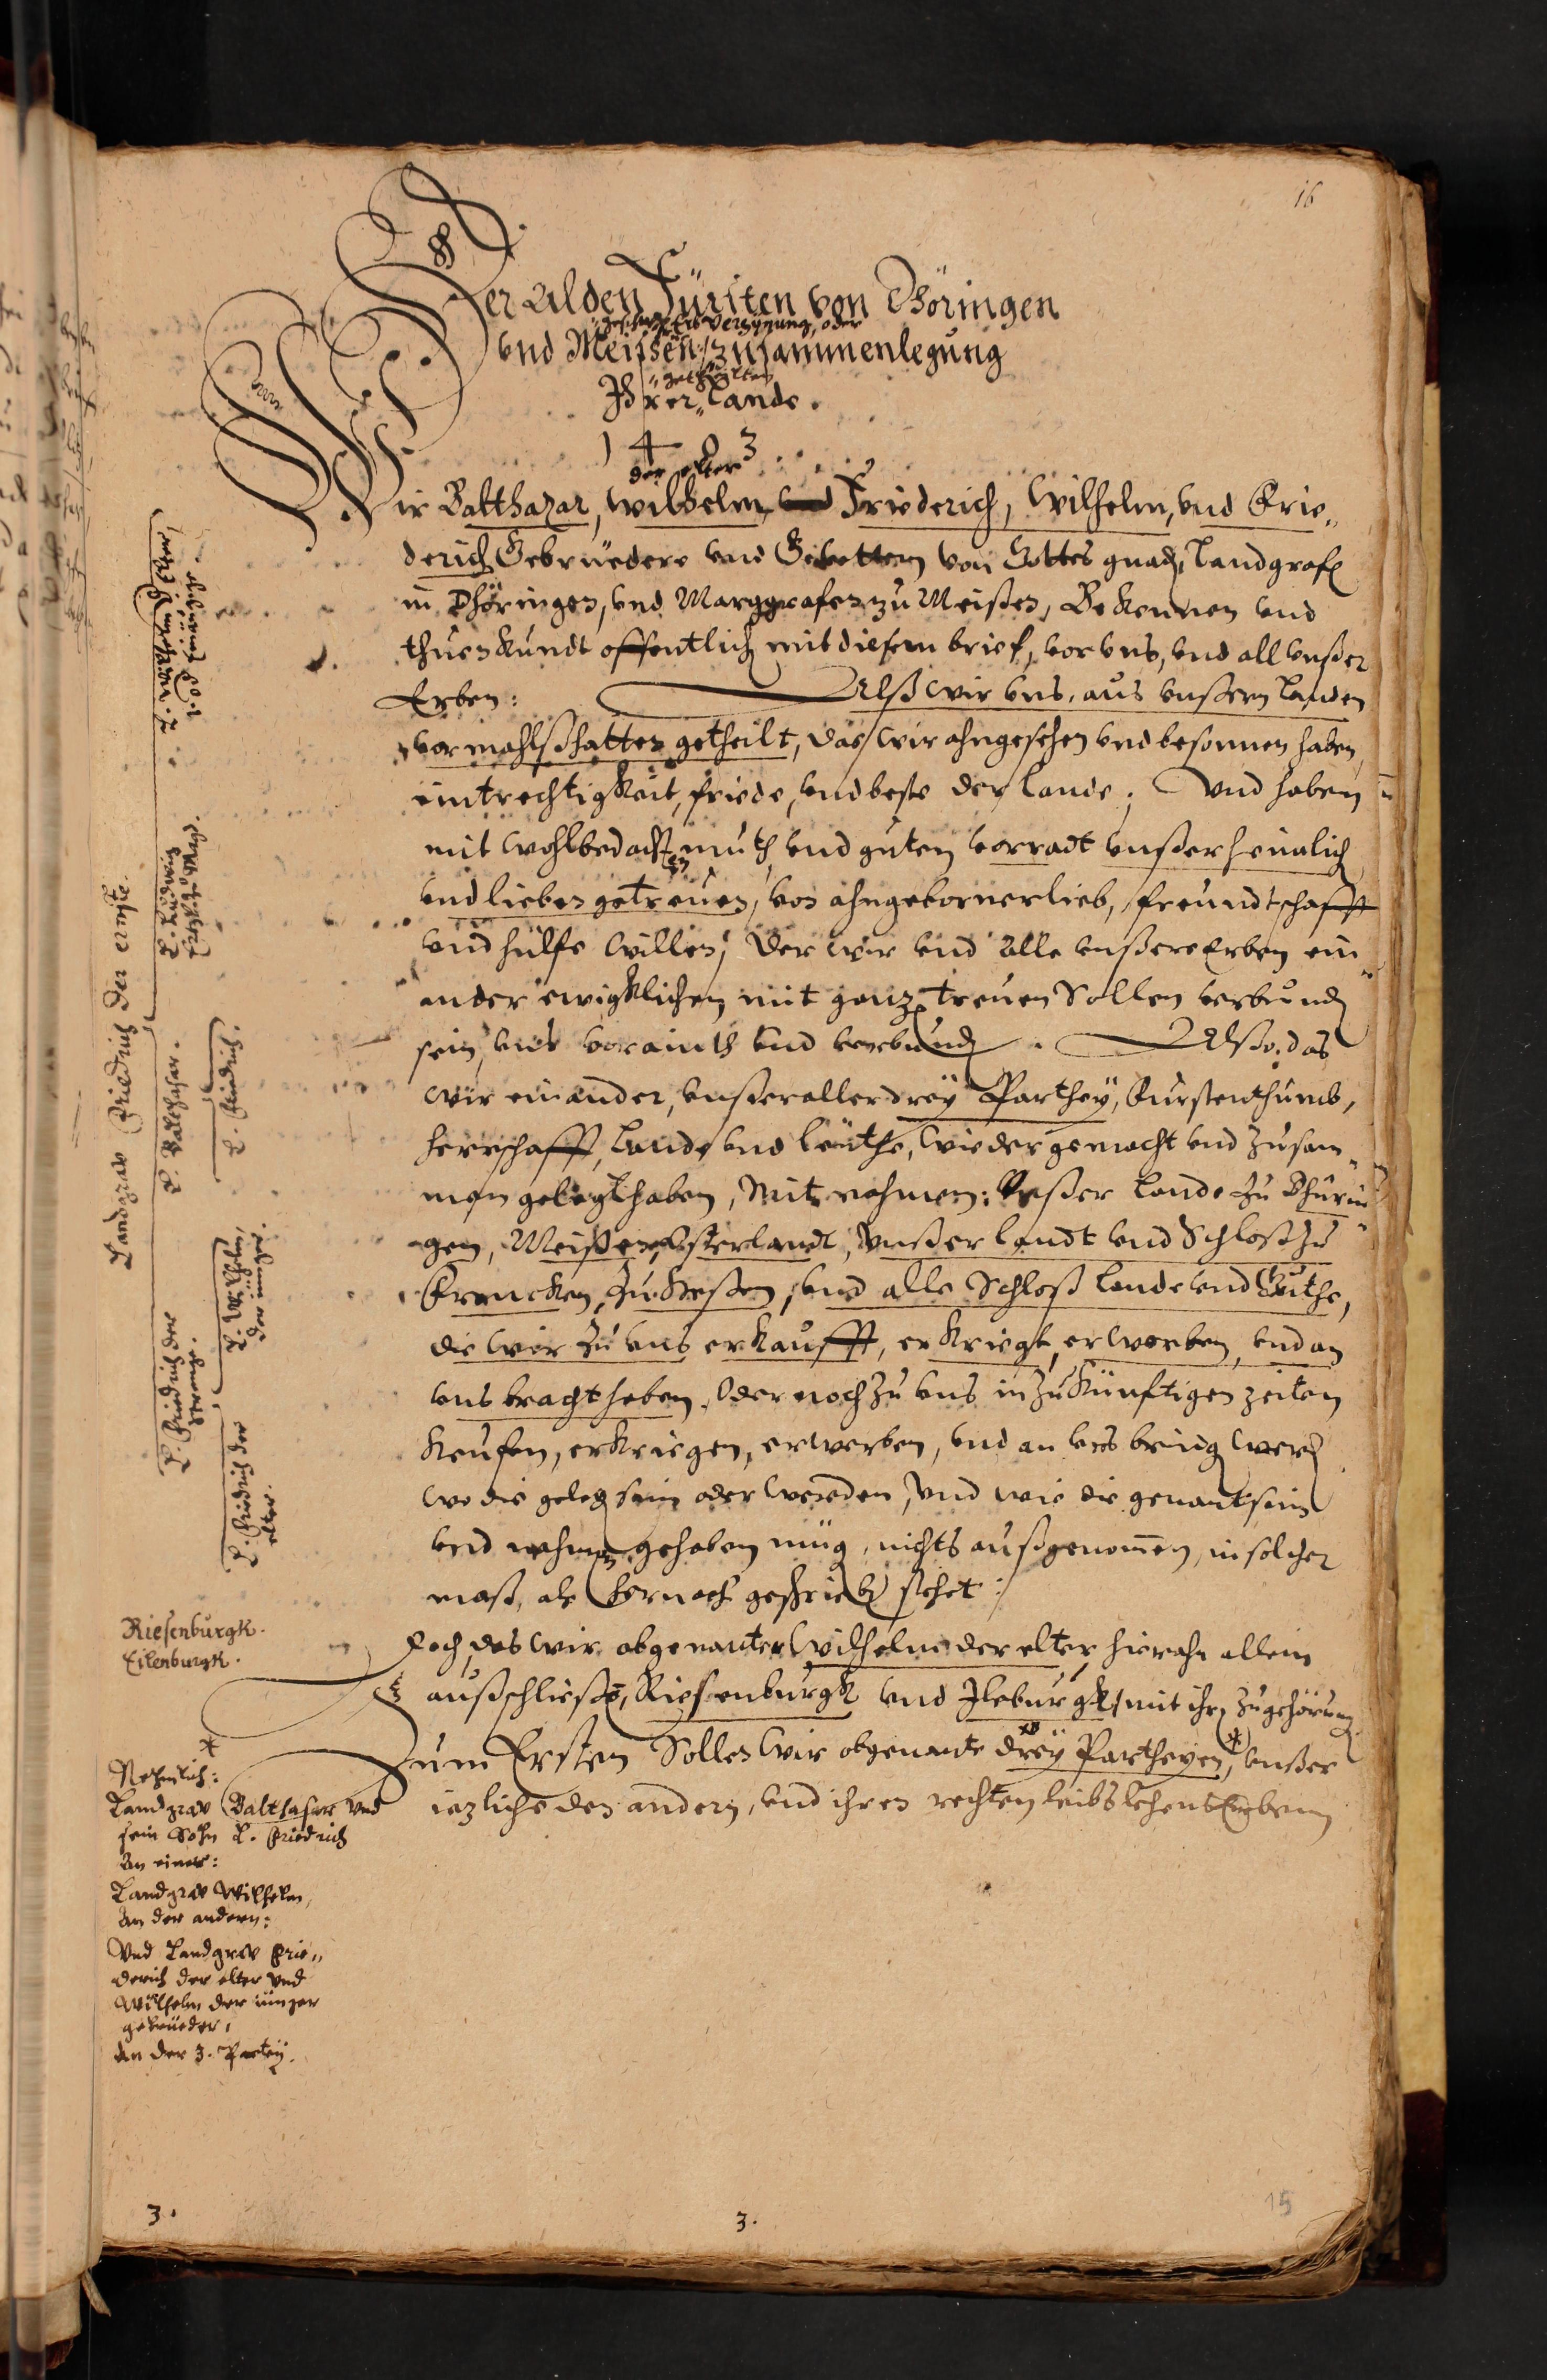 16
Der Alden Fürsten von Döringen
Erb Vereynung, oder
vnd Meissen, Zusammenlegung
getheilten
Ihrer Lande.
1403
der elter
Wir Balthazar, Wilhelm, vnd Friederich, Wilhelm, vnd Frie„
derich Gebruedere vnd Gevettern von Gottes gnad, Landgrafen
in Dhöringen, vnd Marggrafen zu Meißen, Bekennen vnd
thuen kundt offentlich mit diesem brief, vor vns, vnd all vnßer
Erben: Alß wir vns, aus vnßern Landen
vormahlß hatten getheilt, das wir ahngesehen vnd besonnen haben,
eintrechtigkeit, friede, vnd beste der Lande; Vnd haben
mit wohlbedachten muth, vnd guten vorradt vnßer heimlich
vnd lieben getreuen, von ahngeborner lieb, freundtschafft
vnd hülfe willen, der wir vnd alle vnßere Erben ein„
ander ewigklichen mit ganz treuen Sollen verbunden
sein, vns voreinth vnd verbunden. Alßo, das
wir einander, vnßer aller drey Parthey, Furstenthumb,
herrschafft, Lande vnd leuthe, wieder gemacht vnd zusam„
men gelegt haben, Mit nahmen: Vnßer Lande zu Dhurin„
gen, Meißen, Osterlandt, Vnßer landt vnd Schloß zu
Francken, zu Heßen, vnd alle Schloß Lande vnd Leuthe,
die wir zu vns erkaufft, erkriegt, erworben, vnd an
vns bracht haben, Oder noch zu vns in zukünftigen zeiten
keufen, erkriegen, erwerben, vnd an vns bringen werden
wo die gelegen sein oder werden, Vnd wie die genant sein
vnd nahmen gehaben müg, nichts außgenommen, in solcher
maß, als hernach geschrieben stehet:
Doch, das wir obgenanter Wilhelm der elter, hieran allein
außschließen, Riesenburgk vnd Ileburgk, mit ihren zugehörung
Zum Ersten Sollen wir obgenante drey Partheyen, * vnßer
iezliche den andern, vnd ihren rechten leibs lehens Erbenn
Landgrav Friedrich der ernste.
L. Balthasar.
L. Friedrich.
L. Friedrich der
strenge.
L. Wilhelm,
der iunge.
L. Friedrich der
elter.
Riesenburgk.
Eilenburgk.
*
Nehmlich:
Landgrav Balthasar vnd
sein Sohn L. Friedrich
An einer:
Landgrav Wilhelm,
An der andern:
Vnd Landgrav Frie„
derich der elter vnd
Wilhelm der iünger
gebrüder,
An der 3. Partey.
3.
3.
15